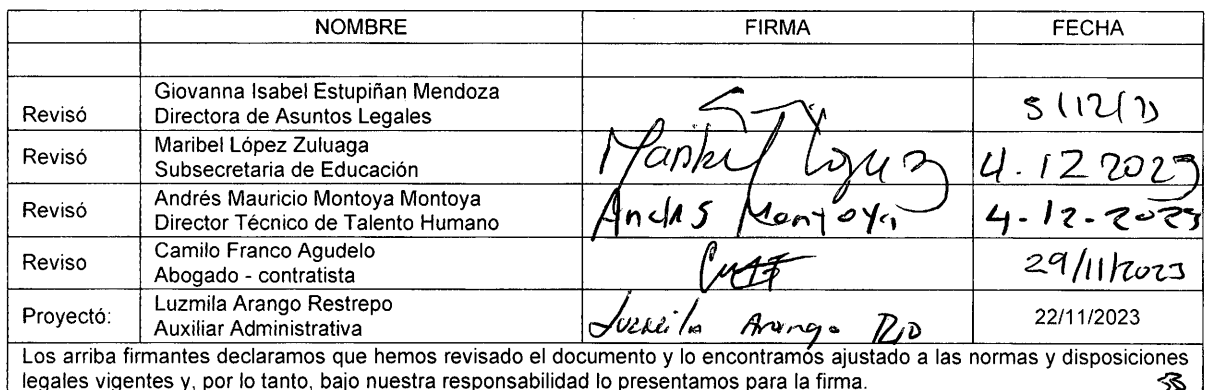 NOMBRE FIRMA FECHA
Giovanna Isabel Estupiñan Mendoza
Revisó Directora de Asuntos Legales 5/12/
Maribel López Zuluaga
Revisó Subsecretaria de Educación Maribel López Z 4.12 2023
Andrés Mauricio Montoya Montoya
Revisó Director Técnico de Talento Humano Andrés Montoya 4-12-2023
Camilo Franco Agudelo
Reviso Abogado - contratista 29/11/2023
Luzmila Arango Restrepo
Proyectó: Auxiliar Administrativa Luzmila Arango 22/11/2023
Los arriba firmantes declaramos que hemos revisado el documento y lo encontramos ajustado a las normas y disposiciones
legales vigentes y, por lo tanto, bajo nuestra responsabilidad lo presentamos para la firma.